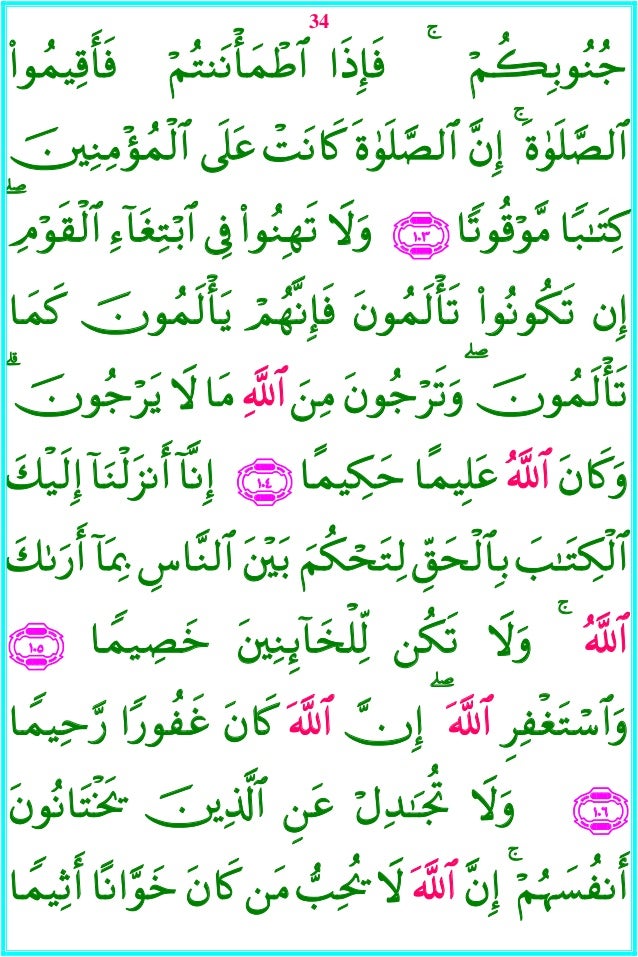 34
جُنُوبِكُمْ ۚ فَإِذَا ٱطْمَأْنَنتُمْ فَأَقِيمُوا۟
ٱلصَّلَوٰةَ ۚ إِنَّ ٱلصَّلَوٰةَ كَانَتْ عَلَى ٱلْمُؤْمِنِينَ
كِتَـٰبًا مَّوْقُوتًا ١٠٣ وَلَا تَهِنُوا۟ فِى ٱبْتِغَآءِ ٱلْقَوْمِ ۖ
إِن تَكُونُوا۟ تَأْلَمُونَ فَإِنَّهُمْ يَأْلَمُونَ كَمَا
تَأْلَمُونَ ۖ وَتَرْجُونَ مِنَ ٱللَّهِ مَا لَا يَرْجُونَ ۗ
وَكَانَ ٱللَّهُ عَلِيمًا حَكِيمًا ١٠٤ إِنَّآ أَنزَلْنَآ إِلَيْكَ
ٱلْكِتَـٰبَ بِٱلْحَقِّ لِتَحْكُمَ بَيْنَ ٱلنَّاسِ بِمَآ أَرَىٰكَ
ٱللَّهُ ۚ وَلَا تَكُن لِّلْخَآئِنِينَ خَصِيمًا ١٠٥
وَٱسْتَغْفِرِ ٱللَّهَ ۖ إِنَّ ٱللَّهَ كَانَ غَفُورًا رَّحِيمًا
١٠٦ وَلَا تُجَـٰدِلْ عَنِ ٱلَّذِينَ يَخْتَانُونَ
أَنفُسَهُمْ ۚ إِنَّ ٱللَّهَ لَا يُحِبُّ مَن كَانَ خَوَّانًا أَثِيمًا